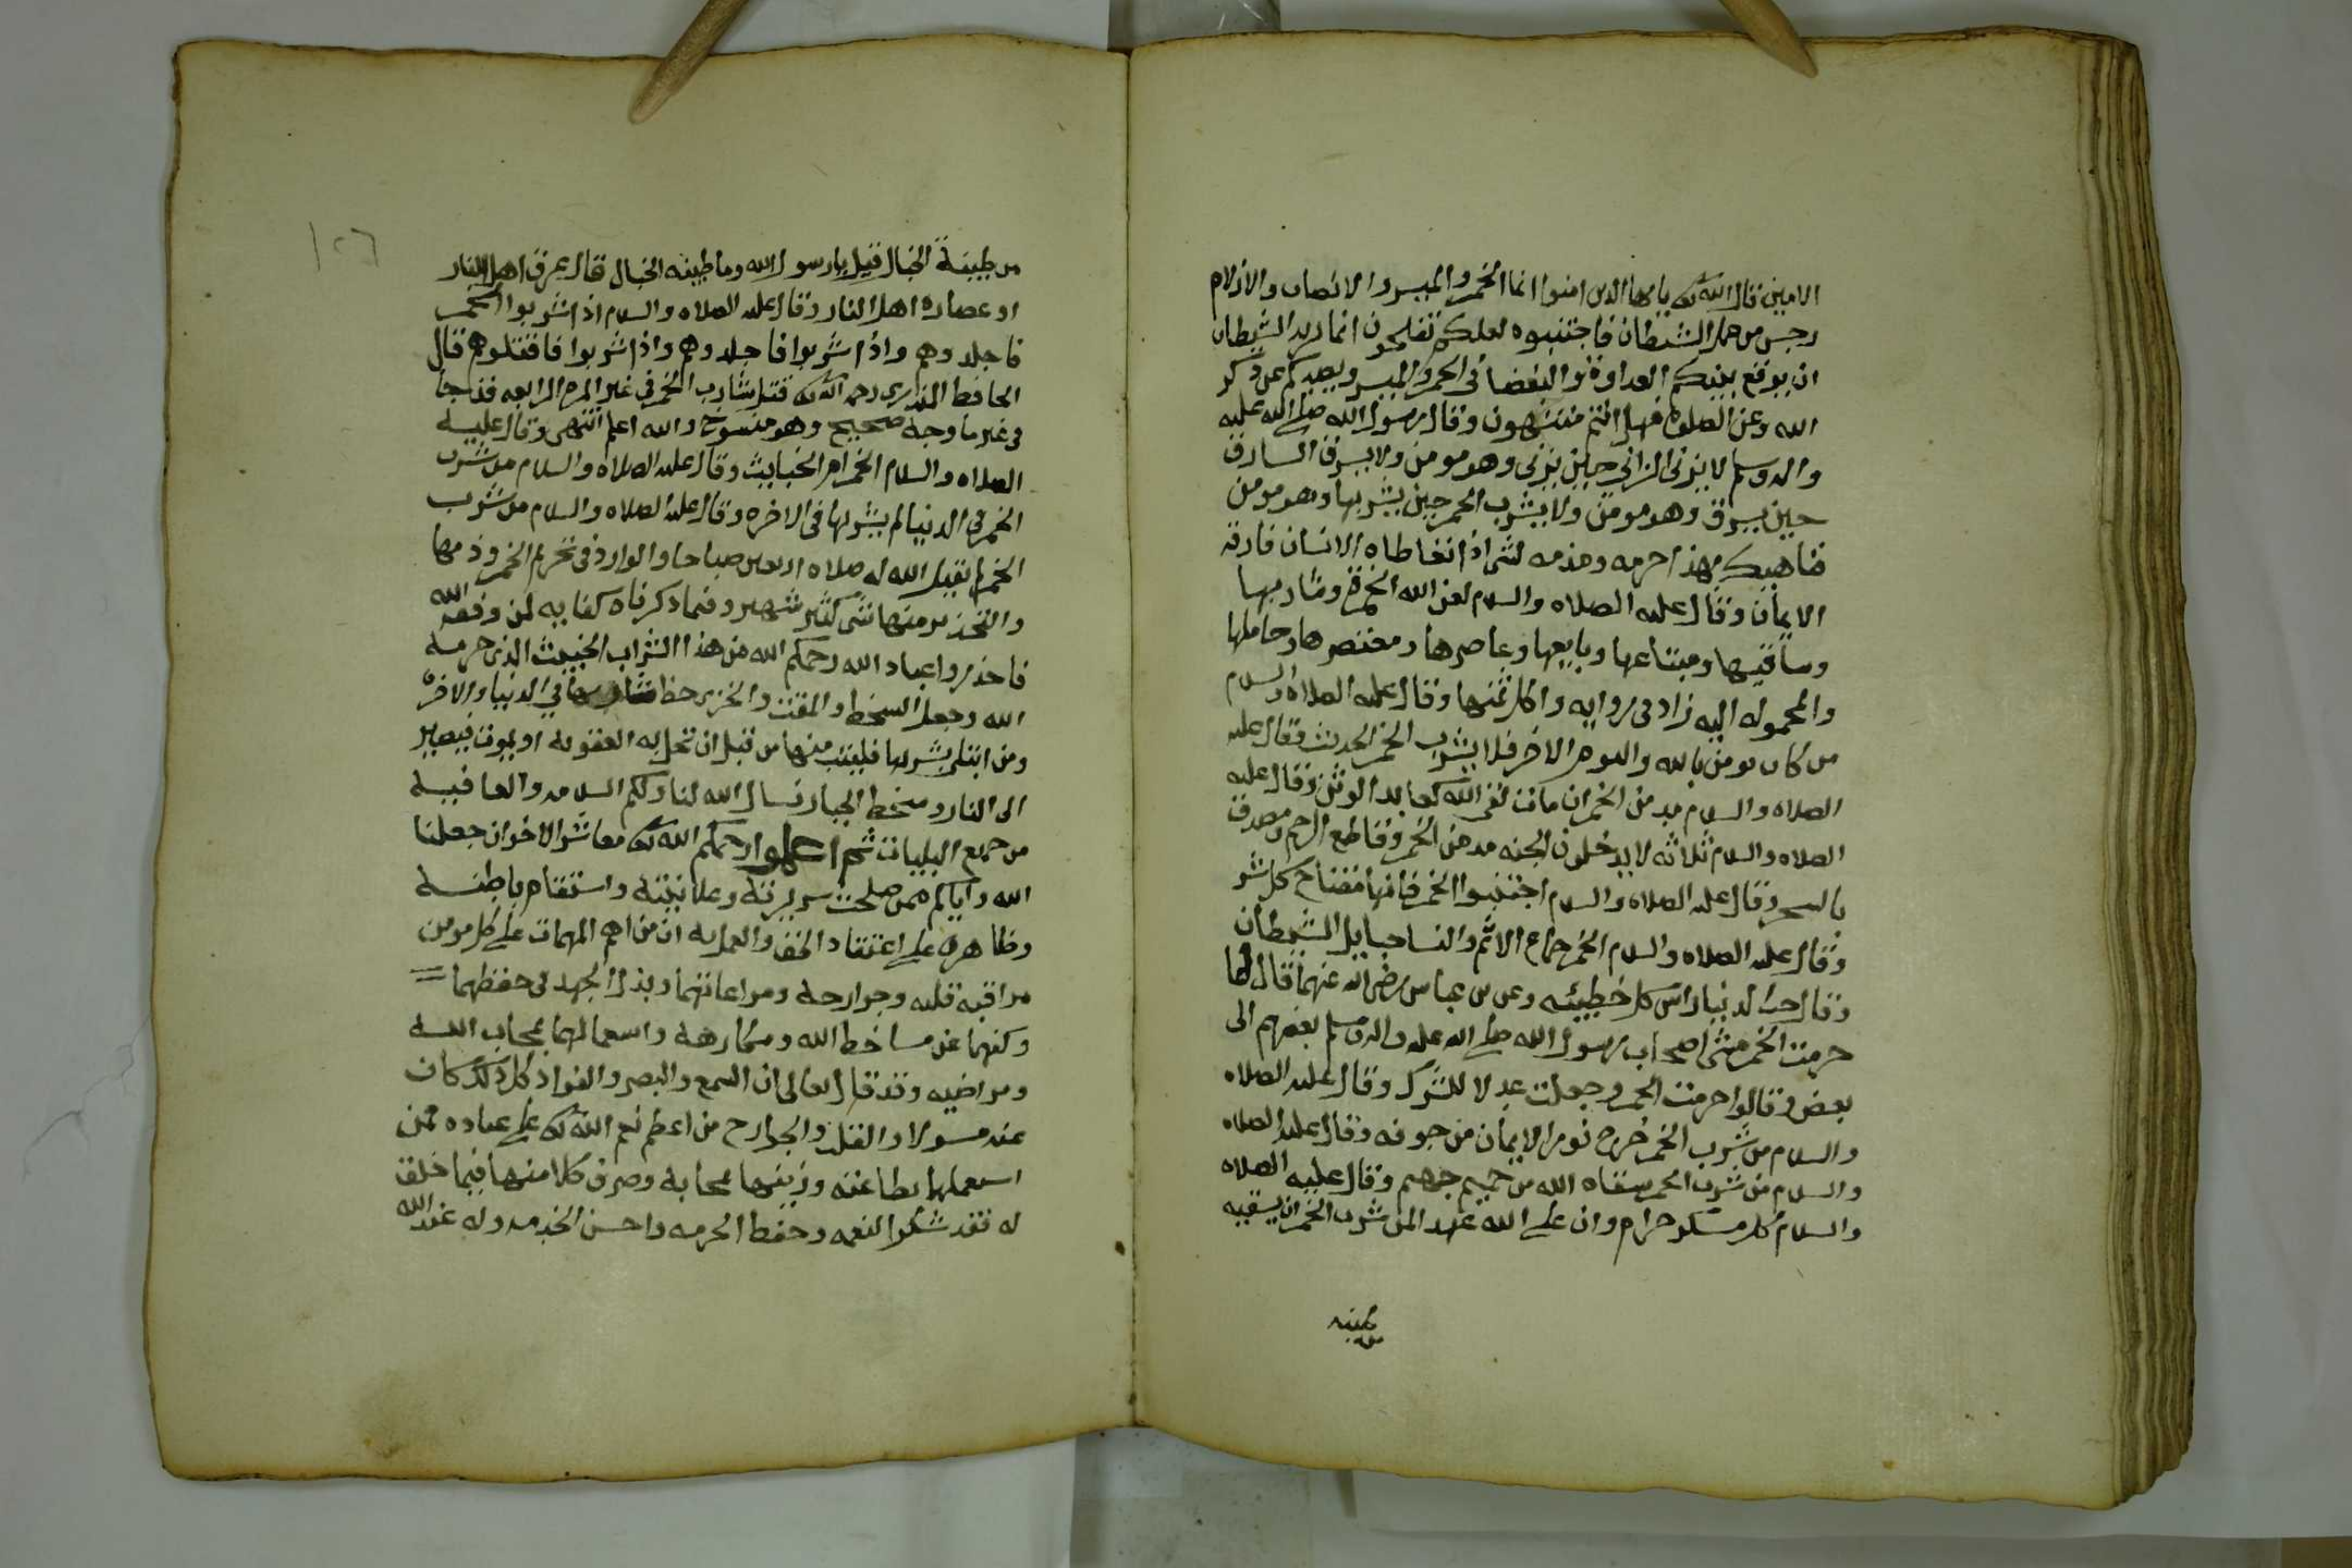 الامين قال الله تع يا ايها الذين امنوا انما الخمر والميسر والانصاب والازلام
رجس من عمل الشيطان فاجتنبوه لعلكم تفلحون انما يريد الشيطان
ان يوقع بينكم العداوة والبغضا في الخمر والميسر ويصدكم عن ذكر
الله وعن الصلوة فهل انتم منتهون وقال رسول الله صلى الله عليه
واله وسلم لا يزنى الزاني حين يزنى وهو مومن ولا يسرق السارق
حين يسرق وهو مومن ولا يشرب الخمر حين يشربها وهو مومن
فناهيك بهذا حرمه ومذمه لشى اذا تعاطاه الانسان فارقه
الايمان وقال عليه الصلاه والسلام لعن الله الخمرة وشاربها
وساقيها ومبتاعها وبايعها وعاصرها ومعتصرها وحاملها
والمحموله اليه زاد في روايه واكل ثمنها وقال عليه الصلاة والسلام
من كان يومن بالله واليوم الاخر فلا يشرب الخمر الحديث وقال عليه
الصلاه والسلام مدمن الخمر ان مات لقى الله كعابد الوثن وقال عليه
الصلاه والسلام ثلاثه لا يدخلون الجنه مدمن الخمر وقاطع الرحم ومصدق
بالسحر وقال عليه الصلاه والسلام اجتنبوا الخمر فانها مفتاح كل شر
وقال عليه الصلاه والسلام الخمر جماع الاثم والنسا حبايل الشيطان
وقال حب الدنيا راس كل خطيئه وعن بن عباس رضي الله عنهما قال لما
حرمت الخمر مشى اصحاب رسول الله صلى الله عليه واله وسلم بعضهم الى
بعض وقالوا حرمت الخمر وجعلت عدلا للشرك وقال عليه الصلاه
والسلام من شرب الخمر خرج نور الايمان من جوفه وقال عليه الصلاه
والسلام من شرب الخمر سقاه الله من حميم جهنم وقال عليه الصلاه
والسلام كل مسكر حرام وان على الله عهد المن شرب الخمر ان يسقيه
من طينه
١٢٦
من طينة الخبال قيل يا رسول الله وما طينه الخبال قال عرق اهل النار
او عصاره اهل النار وقال عليه الصلاه والسلام اذا شربوا الخمر
فاجلدوهم واذا شربوا فاجلدوهم واذا شربوا فاقتلوهم قال
الحافظ المنذري رحمه الله تع قتل شارب الخمر في غير المره الرابعه قد جا
في غير ما وجه صحيح وهو منسوخ والله اعلم انتهى وقال عليه
الصلاه والسلام الخمر ام الخبايث وقال عليه الصلاه والسلام من شرب
الخمر في الدنيا لم يشربها في الاخره وقال عليه الصلاه والسلام من شرب
الخمر لم يقبل الله له صلاه اربعين صباحا والوارد في تحريم الخمر وذمها
والتحذير منها شى كثير شهير وفيما ذكرناه كفايه لمن وفقه الله
فاحذروا عباد الله رحمكم الله من هذا الشراب الخبيث الذي حرمه
الله وجعل السخط والمقت والخزي حظ شاربها في الدنيا والاخره
ومن ابتلى بشربها فليتب منها من قبل ان تحل به العقوبه او يموت فيصير
الى النار وسخط الجبار نسال الله لنا ولكم السلامه والعافيه
من جميع البليات ثم اعلموا رحمكم الله تع معاشر الاخوان جعلنا
الله واياكم ممن صلحت سريرته وعلانيته واستقام باطنه
وظاهره على اعتقاد الحق والعمل به ان من اهم المهمات على كل مومن
مراقبه قلبه وجوارحه ومراعاتهما وبذل الجهد في حفظهما
وكفهما عن مساخط الله ومكارهه واستعمالهما بمحاب الله
ومراضيه وقد قال تعالى ان السمع والبصر والفواد كل ذلك كان
عنه مسولا والقلب والجوارح من اعظم نعم الله تع على عباده فمن
استعملها بطاعته وزينها بمحابه وصرف كلا منها فيما خلق
له فقد شكر النعمه وحفظ الحرمه واحسن الخدمه وله عند الله